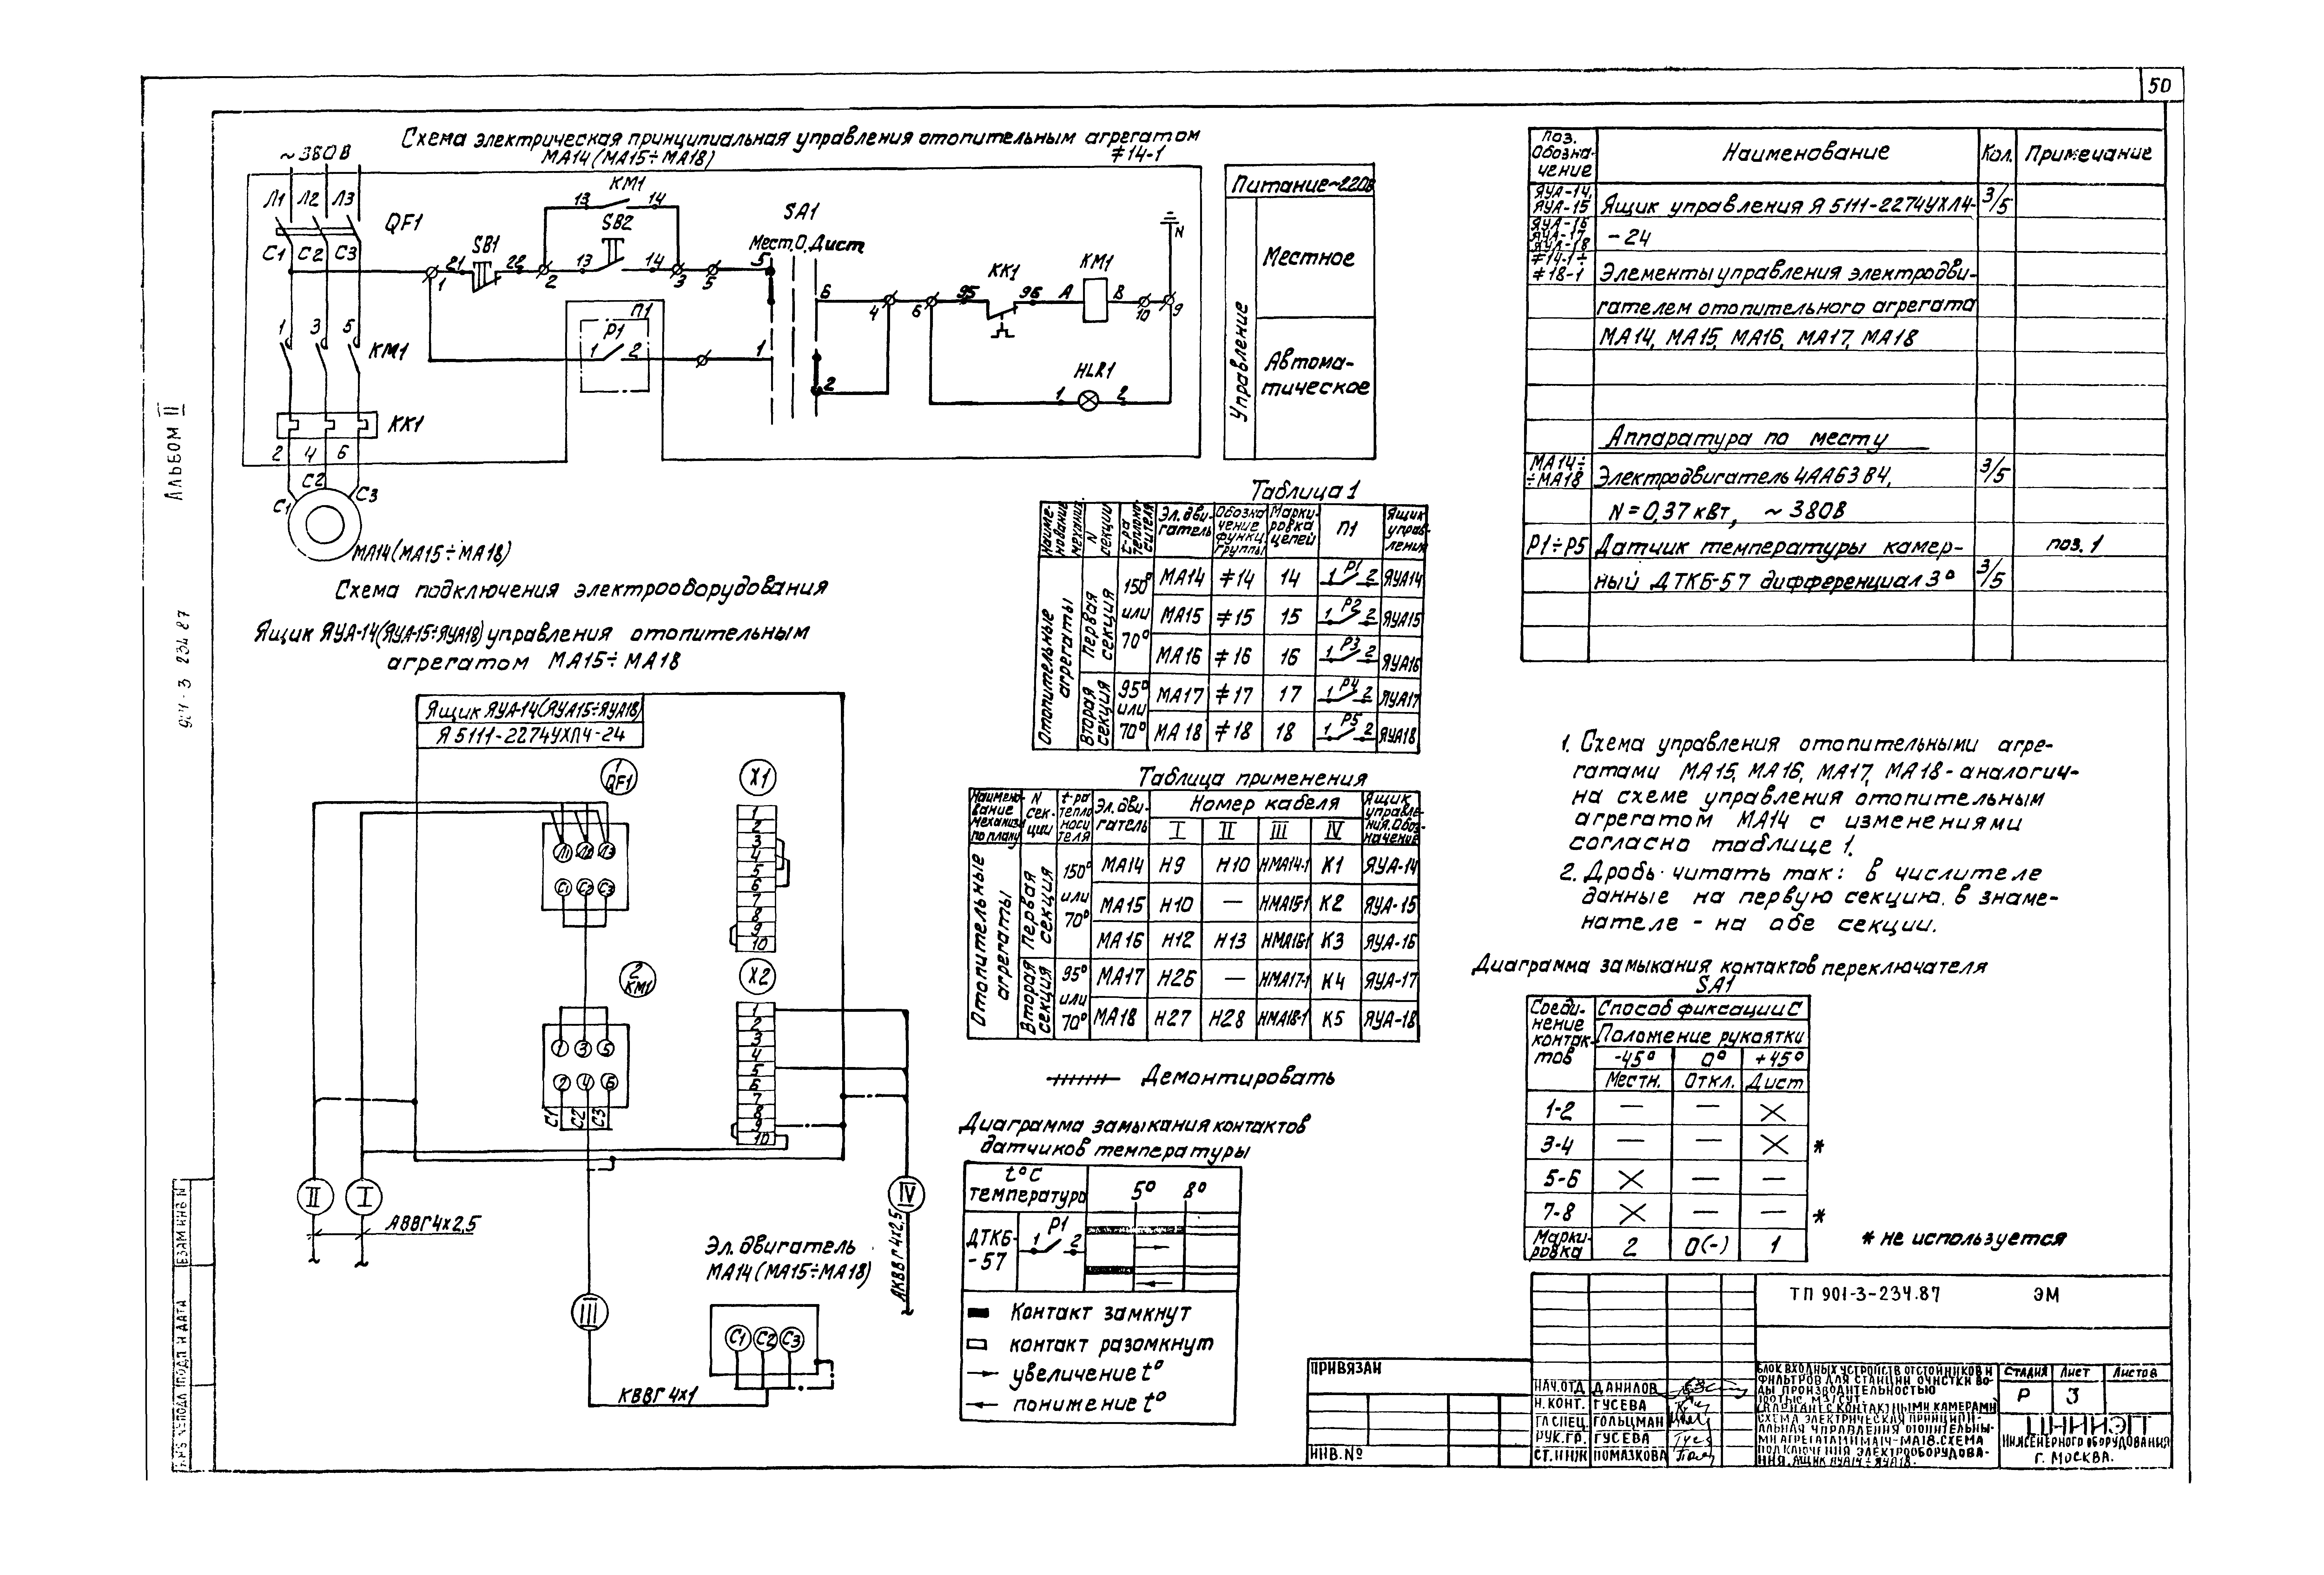 50
Альбом II
Схема электрическая принципиальная управления отопительным агрегатом
МА14 (МА15÷МА18) ≠14-1
~380В
Л1 Л2 Л3
QF1
С1 С2 С3
1 3 5
КМ1
КК1
2 4 6
С1 С2 С3
МА14 (МА15÷МА18)
КМ1
13 14
SB2
13 14
SB1
21 22
1 2 3 5
SA1
Мест. О. Дист
5 6
1 2
П1
Р1
1 2
4 6
КК1
95 96
КМ1
А В
10 9
N
HLR1
1 2
Питание~220В
Управление
Местное
Автома-
тическое
Поз. Обозна-чение Наименование Кол. Примечание
ЯУА-14, ЯУА-15 Ящик управления Я 5111-2274УХЛ4- 3/5
ЯУА-16 ЯУА-17 ЯУА-18 -24
≠14-1÷ ≠18-1 Элементы управления электродви-
гателем отопительного агрегата
МА14, МА15, МА16, МА17, МА18
Аппаратура по месту
МА14÷ ÷МА18 Электродвигатель 4АА63В4, 3/5
N=0,37 кВт, ~380В
Р1÷Р5 Датчик температуры камер- поз. 1
ный ДТКБ-57 дифференциал 3° 3/5
Таблица 1
Наиме-нование механизм. N секции t-ра теплоно-сителя Эл. дви-гатель Обозна чение функц. группы Марки-ровка цепей П1 Ящик управ-ления
Отопительные агрегаты
Первая секция 150° или 70°
МА14 ≠14 14 1 Р1 2 ЯУА14
МА15 ≠15 15 1 Р2 2 ЯУА15
МА16 ≠16 16 1 Р3 2 ЯУА16
Вторая секция 95° или 70°
МА17 ≠17 17 1 Р4 2 ЯУА17
МА18 ≠18 18 1 Р5 2 ЯУА18
Схема подключения электрооборудования
Ящик ЯУА-14 (ЯУА-15÷ЯУА18) управления отопительным
агрегатом МА15÷МА18
Ящик ЯУА-14 (ЯУА15÷ЯУА18)
Я 5111-2274УХЛ4-24
1 QF1
Л1 Л2 Л3
С1 С2 С3
2 КМ1
1 3 5
2 4 6
С1 С2 С3
Х1
1
2
3
4
5
6
7
8
9
10
Х2
1
2
3
4
5
6
7
8
9
10
II I
АВВГ4х2,5
III
КВВГ4х1
IV
АКВВГ4х2,5
Эл. двигатель
МА14 (МА15÷МА18)
С1 С2 С3
Таблица применения
Наимено-вание механизм по плану N сек-ции t-ра тепло носи теля Эл. дви-гатель Номер кабеля Ящик управле-ния. Обоз-начение
I II III IV
Отопительные агрегаты
Первая секция 150° или 70°
МА14 Н9 Н10 НМА14-1 К1 ЯУА-14
МА15 Н10 — НМА15-1 К2 ЯУА-15
МА16 Н12 Н13 НМА16-1 К3 ЯУА-16
Вторая секция 95° или 70°
МА17 Н26 — НМА17-1 К4 ЯУА-17
МА18 Н27 Н28 НМА18-1 К5 ЯУА-18
Демонтировать
Диаграмма замыкания контактов
датчиков температуры
t°С
температура 5° 8°
ДТКБ-
-57
1 Р1 2
Контакт замкнут
контакт разомкнут
увеличение t°
понижение t°
1. Схема управления отопительными агре-
гатами МА15, МА16, МА17, МА18-аналогич-
на схеме управления отопительным
агрегатом МА14 с изменениями
согласно таблице 1.
2. Дробь читать так: в числителе
данные на первую секцию, в знаме-
нателе - на обе секции.
Диаграмма замыкания контактов переключателя
SA1
Соеди-нение контак-тов Способ фиксации С
Положение рукоятки
-45° 0° +45°
Местн. Откл. Дист
1-2 — — ×
3-4 — — × *
5-6 × — —
7-8 × — — *
Марки-ровка 2 0(-) 1
* не используется
ТП 901-3-234.87 ЭМ
Привязан
Инв.№
Нач.отд Данилов
Н.конт. Гусева
Гл.спец. Гольцман
Рук.гр. Гусева
Ст.инж Помазкова
Блок входных устройств отстойников и
фильтров для станции очистки во-
ды производительностью
100 тыс. м3/сут
(вариант с контактными камерами)
Схема электрическая принципи-
альная управления отопительны-
ми агрегатами МА14-МА18. Схема
подключения электрооборудова-
ния. Ящик ЯУА14÷ЯУА18.
Стадия Лист Листов
Р 3
ЦНИИЭП
инженерного оборудования
г. Москва.
Подп и дата
Взам инв N